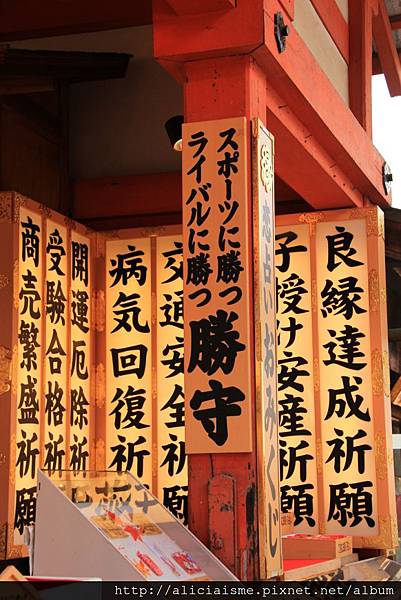 良縁達成祈願
子授け安産祈願
恋占いおみくじ
スポーツに勝つ
ライバルに勝つ
勝守
交通安全祈願
病気回復祈願
開運厄除祈願
受験合格祈願
商売繁盛祈願
http://aliciaism.pixnet.net/album